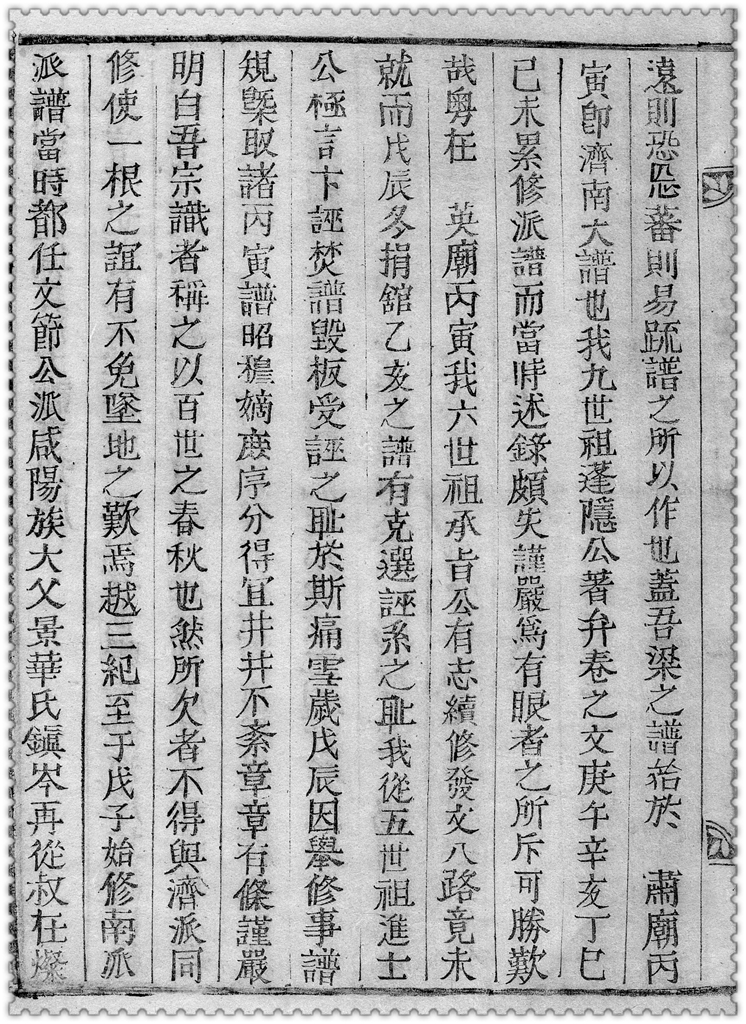 遠則恐忘蕃則易疏譜之所以作也蓋吾梁之譜始於　肅廟丙
寅卽濟南大譜也我九世祖蓬隱公著弁卷之文庚午辛亥丁巳
己未累修派譜而當時述錄頗失謹嚴爲有眼者之所斥可勝歎
哉粤在　英廟丙寅我六世祖承旨公有志續修發文八路竟未
就而戊辰冬捐舘乙亥之譜有克選誣系之耻我從五世祖進士
公極言卞誣焚譜毀板受誣之耻於斯痛雪歲戊辰因擧修事譜
規槩取諸丙寅譜昭穆嫡庶序分得宜井井不紊章章有條謹嚴
明白吾宗識者稱之以百世之春秋也然所欠者不得與濟派同
修使一根之誼有不免墜地之歎焉越三紀至于戊子始修南派
派譜當時都任文節公派咸陽族大父景華氏鎭岑再從叔在燦